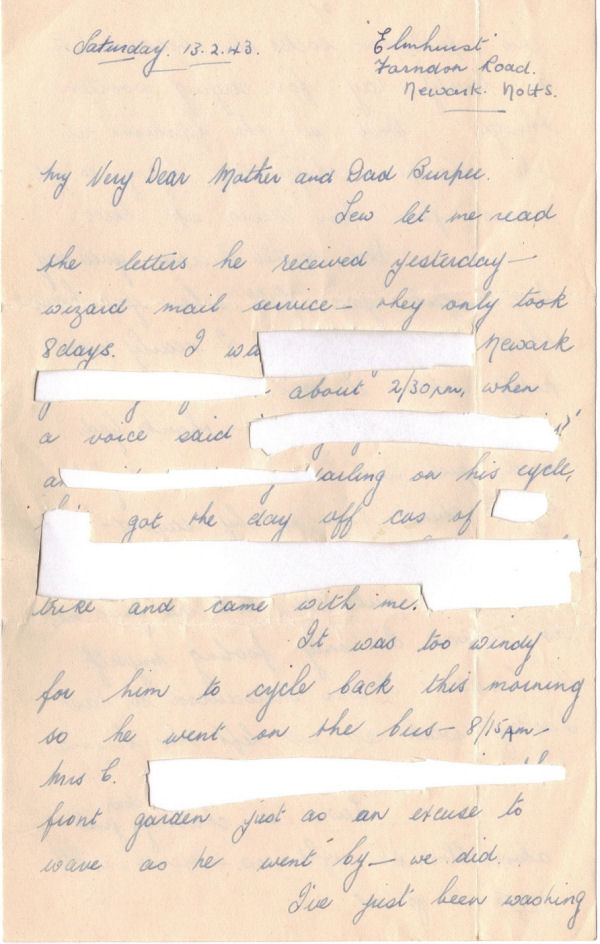 Saturday. 13.2.43.
Elmhurst
Farndon Road.
Newark. Notts.
My Very Dear Mother and Dad Burpee.
Lew let me read
the letters he received yesterday—
wizard mail service— they only took
8 days. I wa
Newark
about 2/30pm, when
a voice said
arling on his cycle,
got the day off cos of
trike and came with me.
It was too windy
for him to cycle back this morning
so he went on the bus— 8/15am—
Mrs C.
front garden just as an excuse to
wave as he went by— we did.
I've just been washing